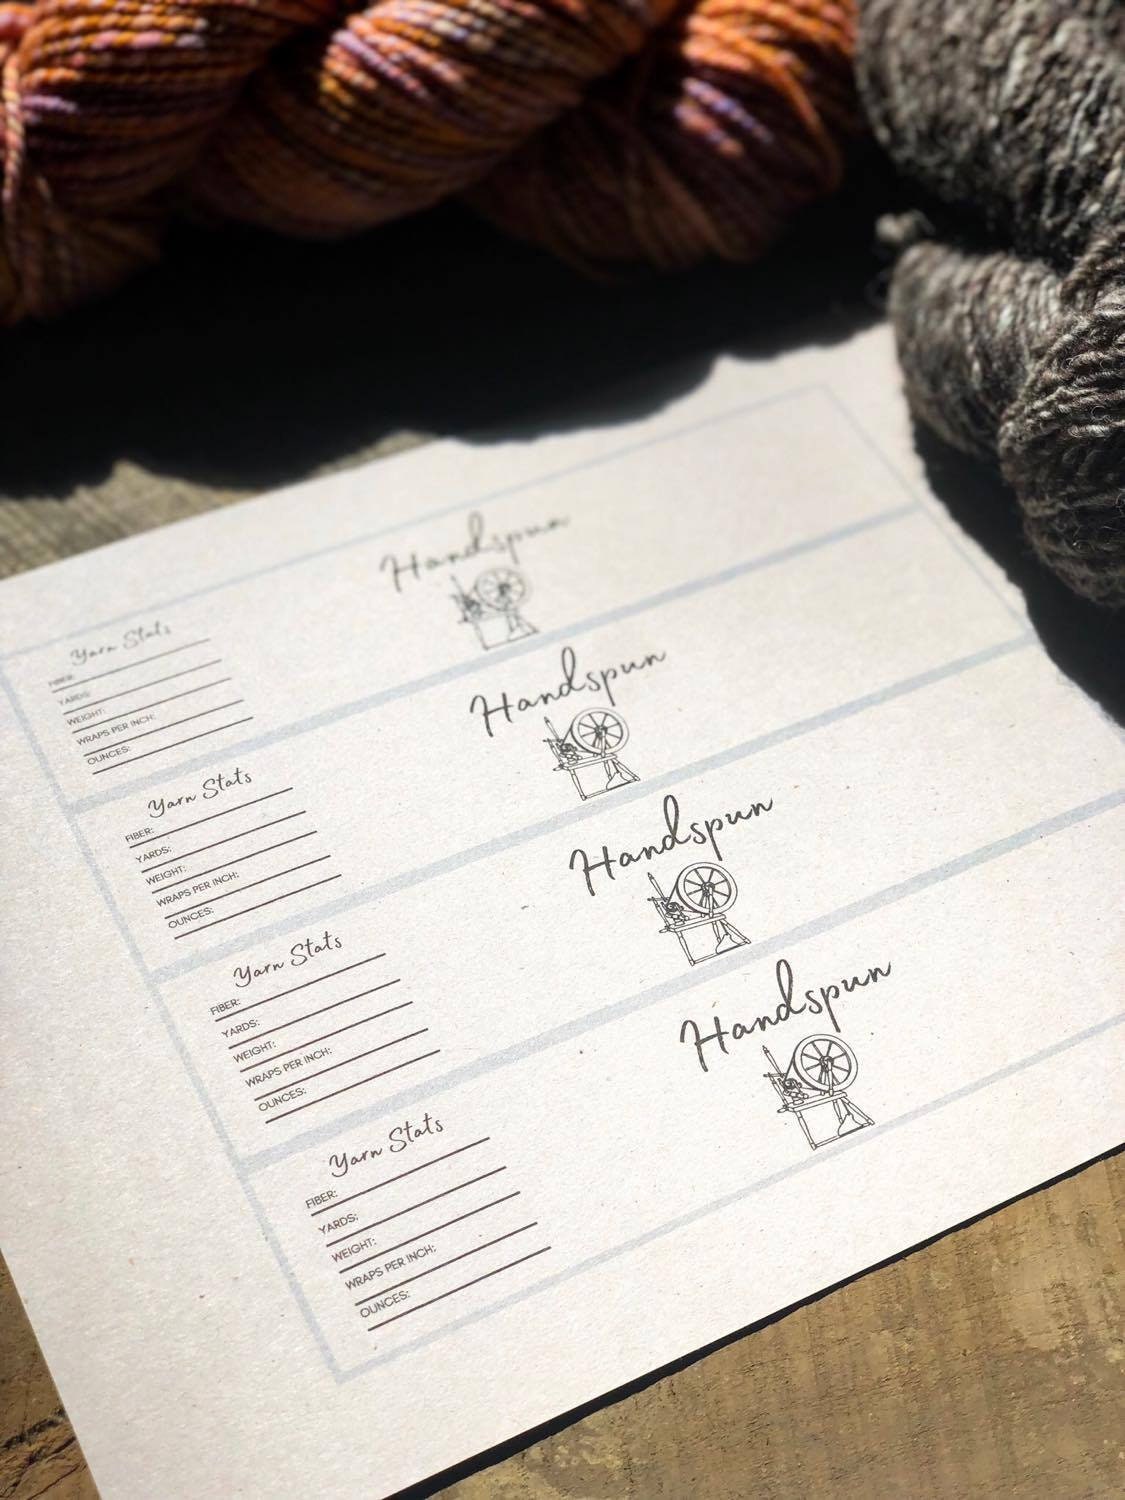 Handspun
Yarn Stats
FIBER:
YARDS:
WEIGHT:
WRAPS PER INCH:
OUNCES:
Handspun
Yarn Stats
FIBER:
YARDS:
WEIGHT:
WRAPS PER INCH:
OUNCES:
Handspun
Yarn Stats
FIBER:
YARDS:
WEIGHT:
WRAPS PER INCH:
OUNCES:
Handspun
Yarn Stats
FIBER:
YARDS:
WEIGHT:
WRAPS PER INCH:
OUNCES: